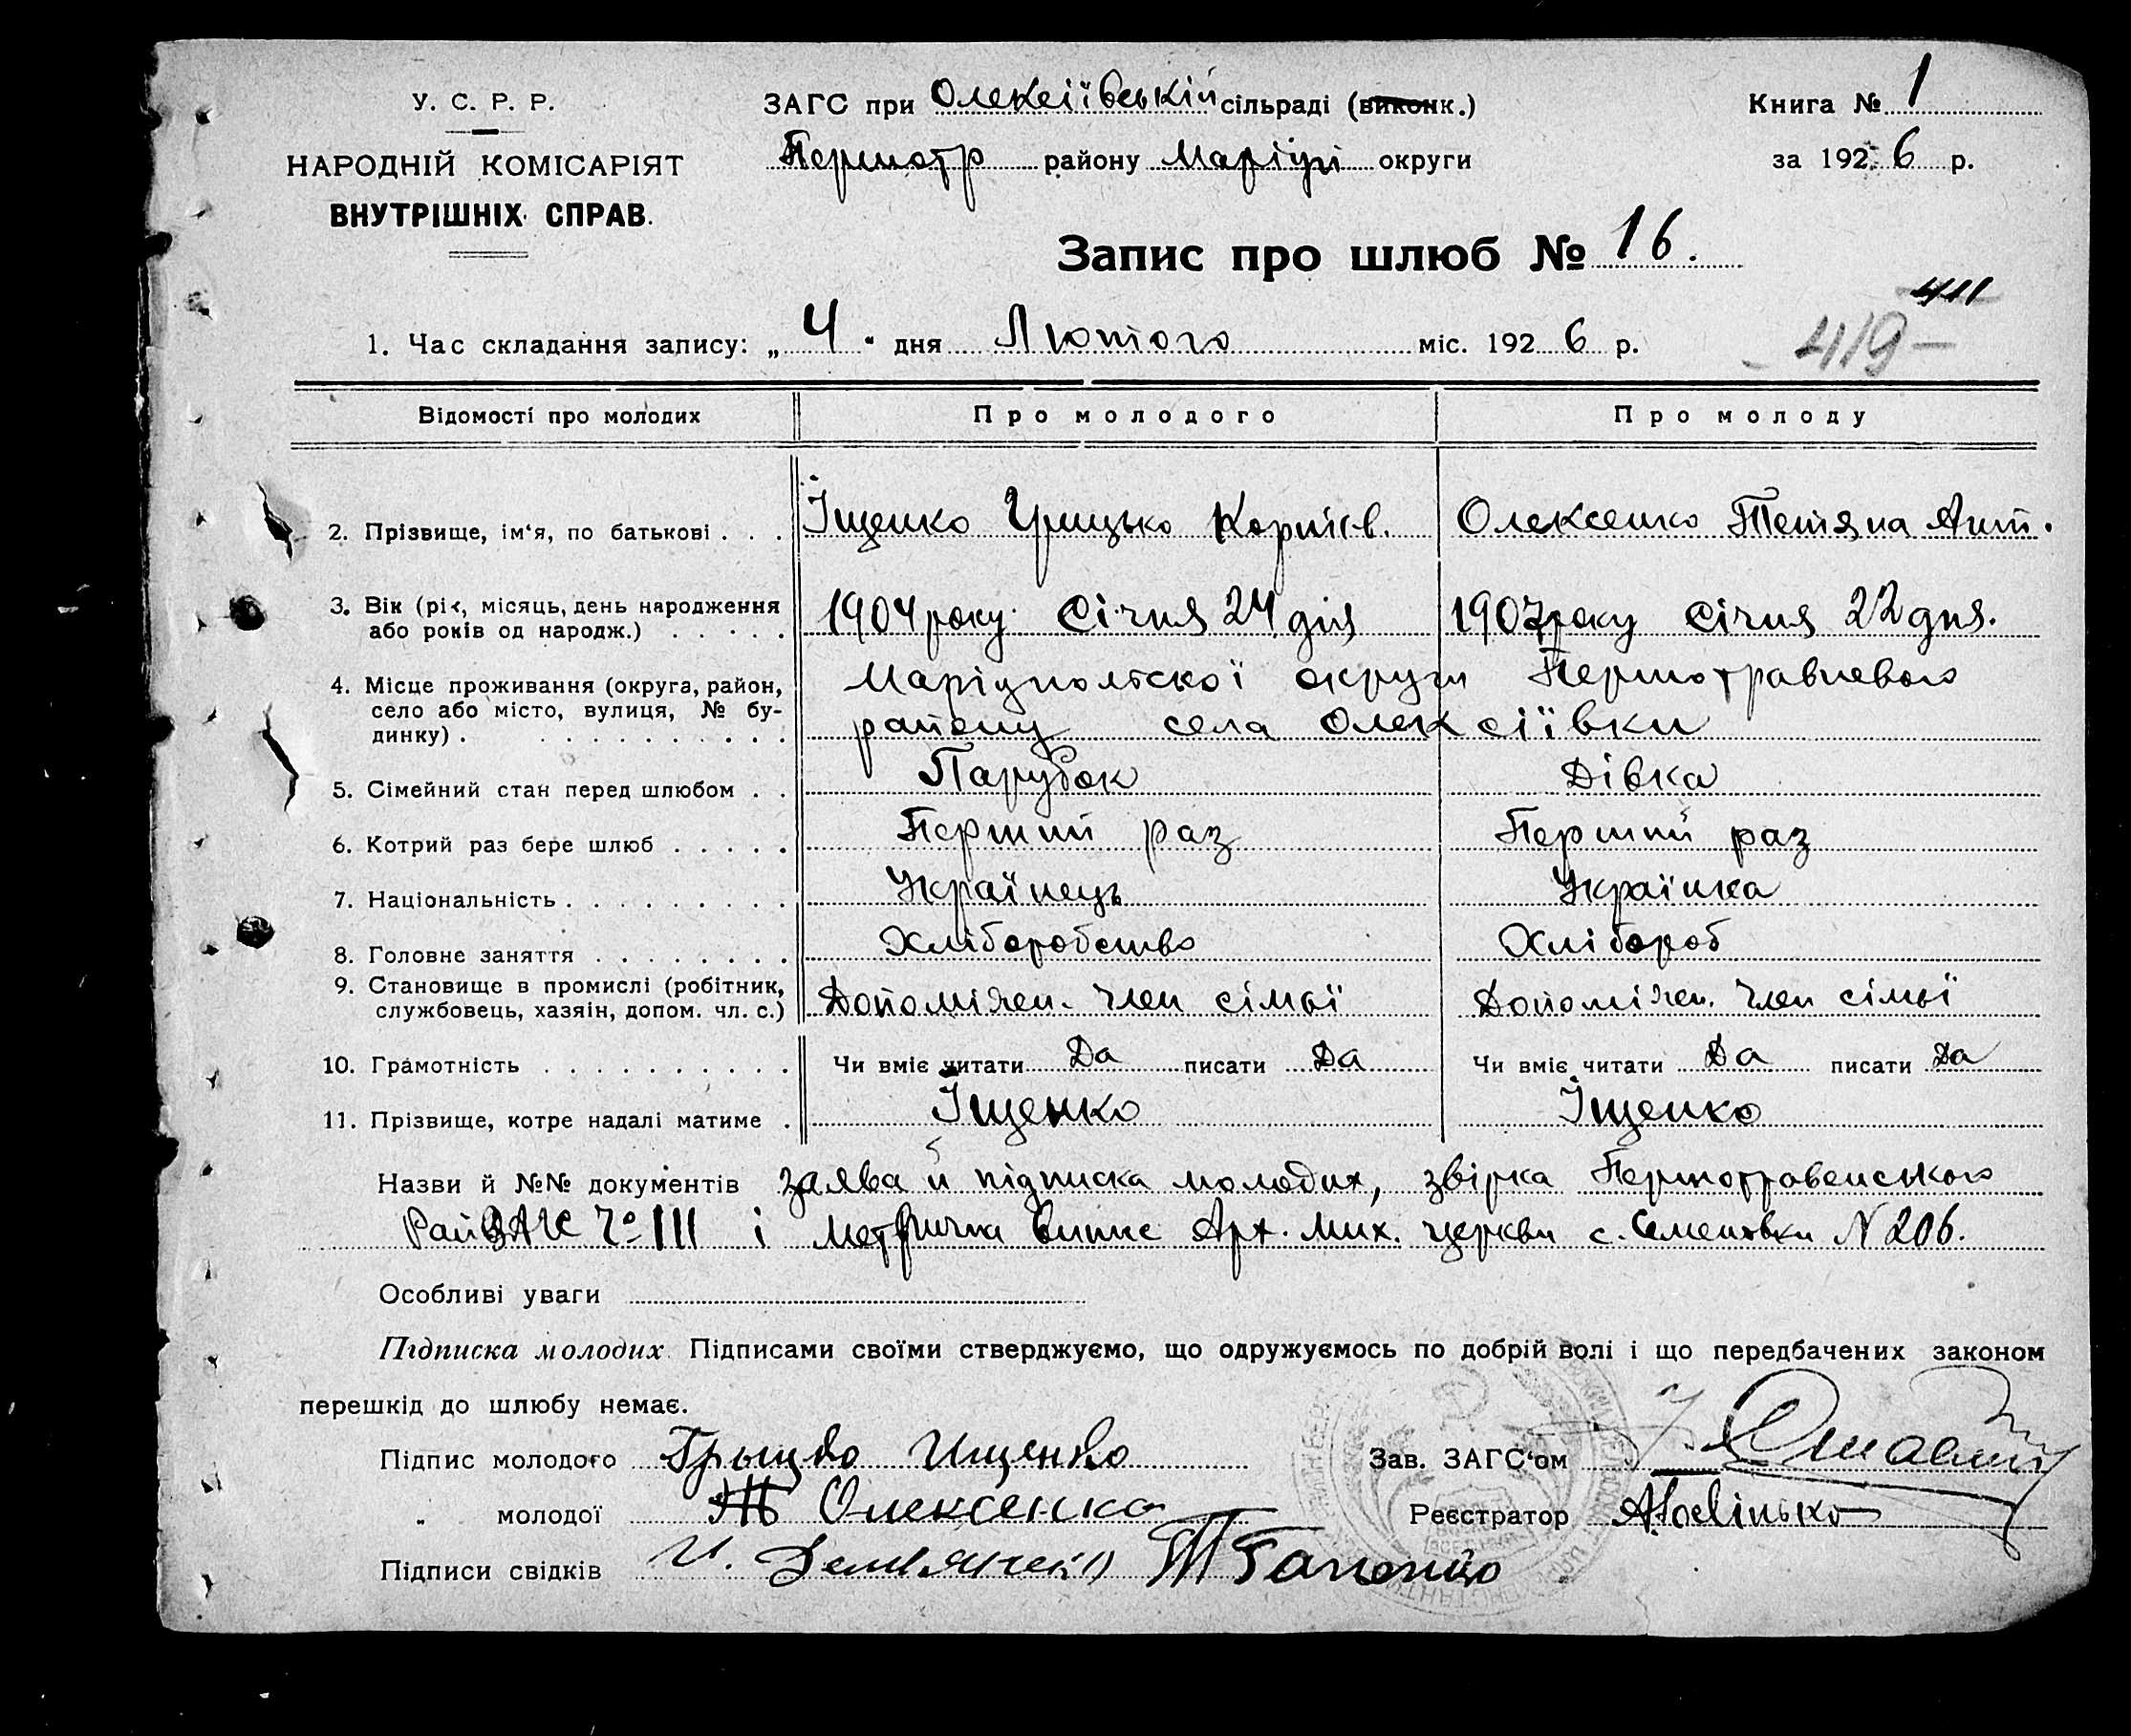 У. С. Р. Р.
НАРОДНІЙ КОМІСАРІЯТ
ВНУТРІШНІХ СПРАВ.
ЗАГС при Олексіївській сільраді (виконк.)
Першотр району Маріуп округи
Книга № 1
за 1926 р.
Запис про шлюб № 16.
411
419
1. Час складання запису: „4“ дня Лютого міс. 1926 р.
Відомості про молодих Про молодого Про молоду
2. Прізвище, ім‘я, по батькові . . . Іщенко Грицько Корнієв. Олексенко Тетяна Ант.
3. Вік (рік, місяць, день народження або років од народж.) . . . . . 1904 року Січня 24 дня 1907 року Січня 22 дня.
4. Місце проживання (округа, район, село або місто, вулиця, № будинку) . . . . . . . . . . Маріупольскої округи Першотравневого
району села Олексіївки
5. Сімейний стан перед шлюбом . . Парубок Дівка
6. Котрий раз бере шлюб . . . . . Перший раз Перший раз
7. Національність . . . . . . . . . Українець Українка
8. Головне заняття . . . . . . . . Хліборобство Хлібороб
9. Становище в промислі (робітник, службовець, хазяін, допом. чл. с.) Допоміжн. член сімьї Допоміжн. член сімьї
10. Грамотність . . . . . . . . . . Чи вміє читати Да писати Да Чи вміє читати Да писати Да
11. Прізвище, котре надалі матиме . Іщенко Іщенко
Назви й №№ документів заява й підписка молодих, звірка Першотравенського
РайЗАГС № 111 і Метрична випис Арх. Мих. церкви с. Семенівки N 206.
Особливі уваги
Підписка молодих. Підписами своїми стверджуємо, що одружуємось по добрій волі і що передбачених законом
перешкід до шлюбу немає.
Підпис молодого Грыцко Ищенко
„ молодої Т Олексенко
Підписи свідків И. Демьянченко
Зав. ЗАГС‘ом
Реєстратор